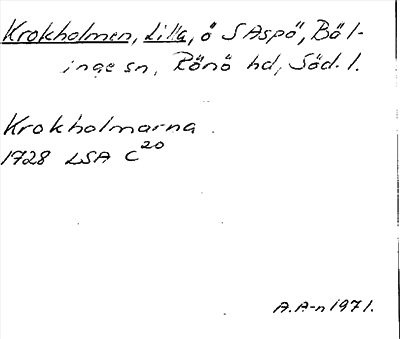 Krokholmen, Lilla, ö S Aspö, Bäl-
inge sn, Rönö hd, Söd. l.
Krokholmarna
1728 LSA C20
A.A-n 1971.